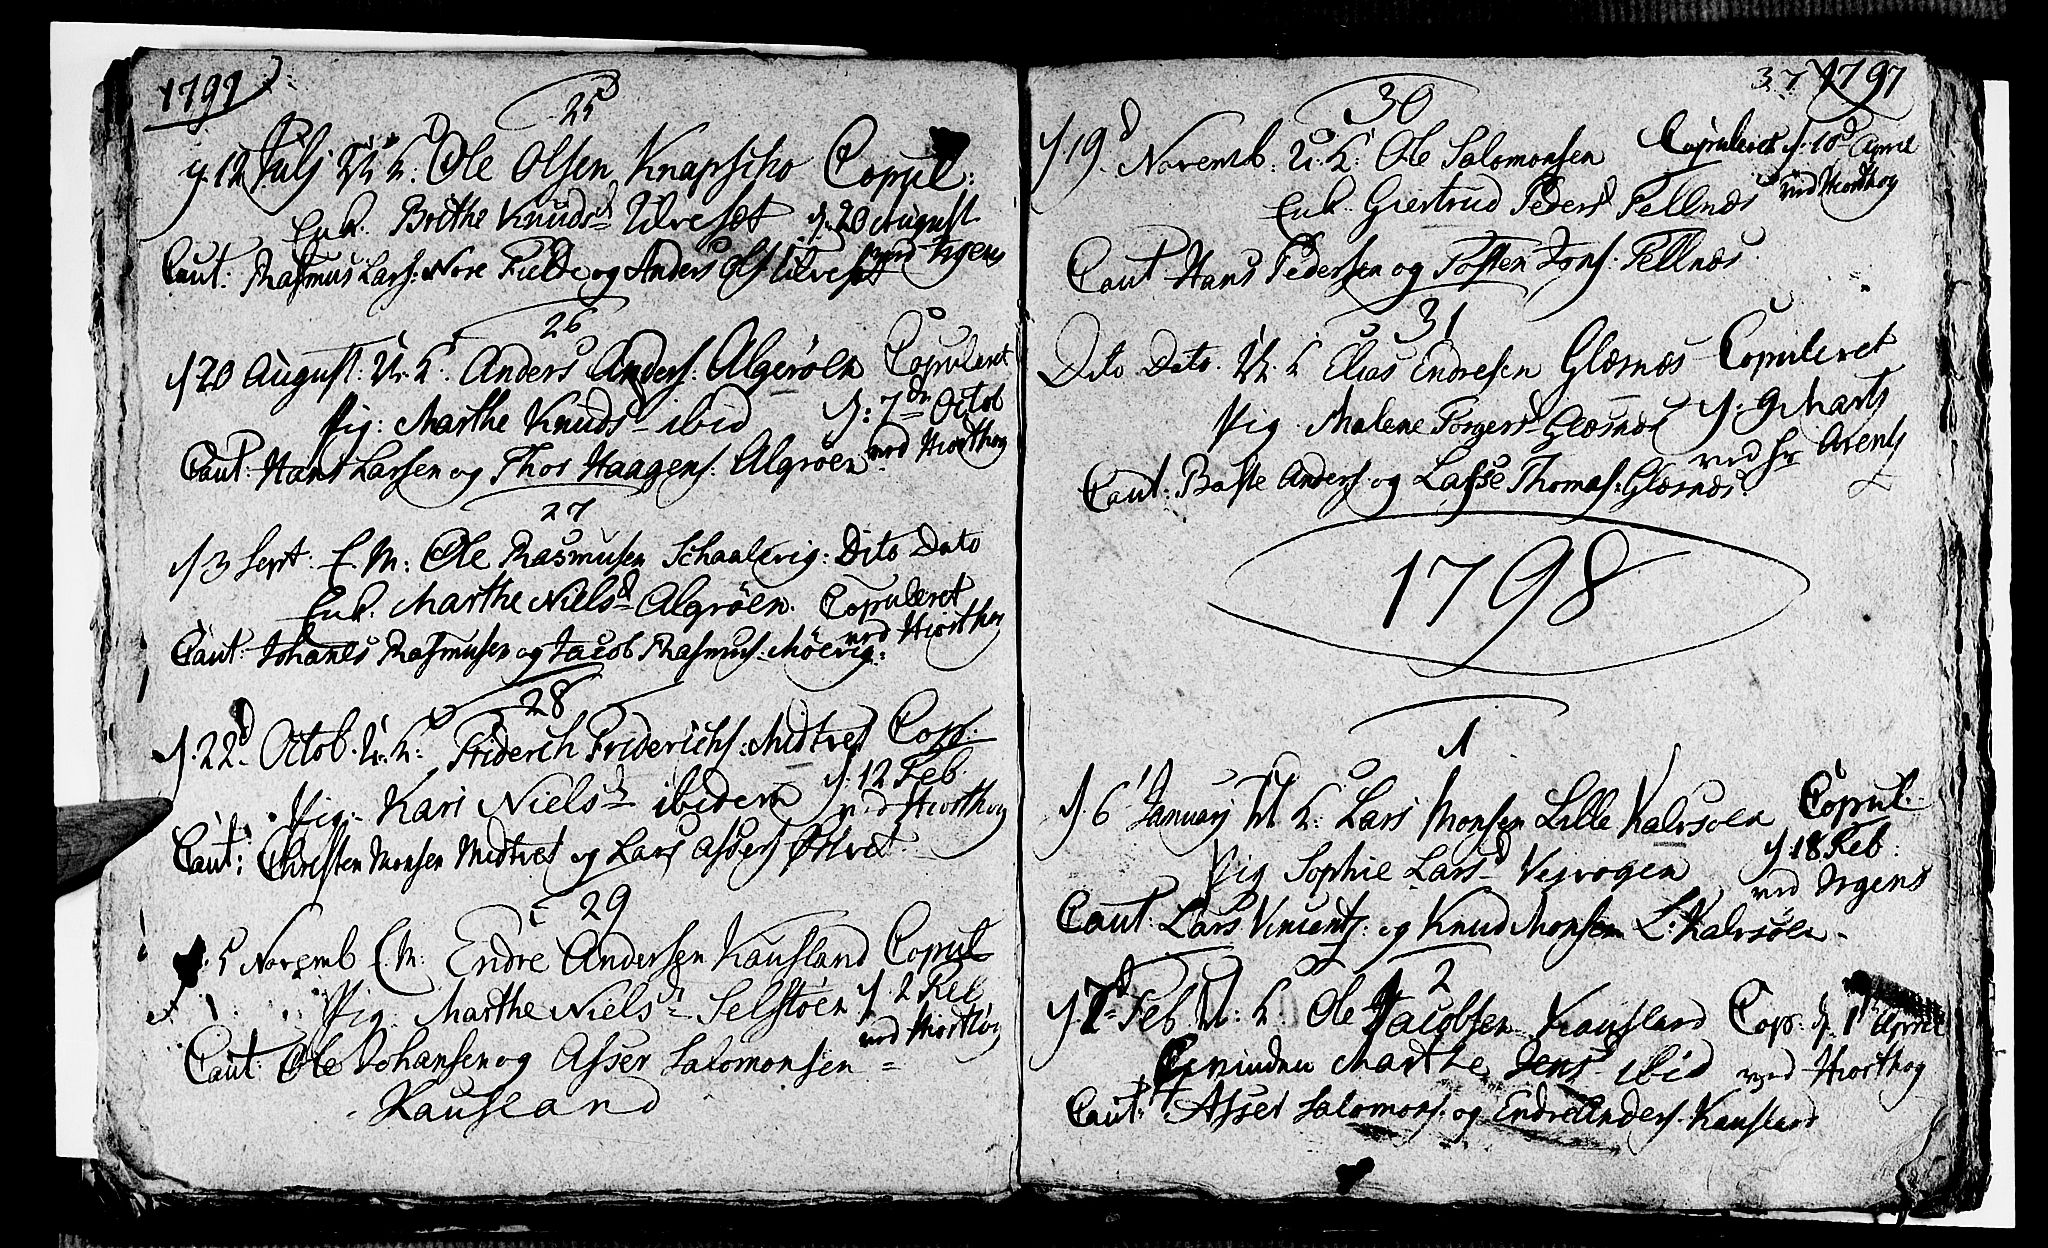 1797
25
d. 12 Julj U: K: Ole Olsen Knapscho Copul:
Enk. Brithe Knuds Ulvesæt d. 20 August
Caut: Rasmus Lars: Nore Fielde og Anders Ols Ulveset ved Irgens
26
d 20 August: U. K. Anders Anders: Algerøen Copuleret
Pig: Marthe Knuds ibid d: 7de Octob
Caut: Hans Larsen og Thor Haagens: Algrøen ved Hiorthog
27
d 3 Sept: E. M: Ole Rasmusen Schaalevig: Dito Dato
Enk. Marthe Nielsd Algrøen. Copuleret
Caut: Johanes Rasmusen og Jacob Rasmus: Møevig: ved Hiorthog
28
d. 22d Octob. U. K: Friderich Friderichs: Midtvet Cop:
Pig. Kari Nielsd ibidem d. 12 Feb.
Caut: Christen Monsen Midtvet og Lars Assers Østvet ved Hiorthog
29
d. 5 Novemb E. M: Endre Andersen Kausland Copul
Pig. Marthe Niels Selstøen d. 2 Feb
Caut: Ole Johansen og Asser Salomonsen = ved Hiorthog
Kausland
37 1797
30
d 19d Novemb: U: K: Ole Salomonsen Copuleret d. 10d April
Enk. Giertrud Pedersd Tellnæs ved Hiorthog
Caut Hans Pedersen og Tosten Jons: Tellnæs
31
Dito Dato. U: K Elias Endresen Glæsnæs Copuleret
Pig. Malene Torgersd Glæsnæs d. 9 Marts
Caut: Baste Anders: og Lasse Thomas: Glæsnæs. ved Hr Arentz
1798
1
d. 6 Januarj U K: Lars Monsen Lille Kalvsøen Copul.
Pig Sophie Larsd Vejvogen d 18 Feb:
Caut: Lars Vincents: og Knud Monsen L: Kalvsøen ved Irgens
2
d. 7d Feb U: K. Ole Jacobsen Kausland Cop: d. 1 April
Qvinden Marthe Jens ibid ved Hiorthog
Caut: Asser Salomons: og Endre Anders: Kausland